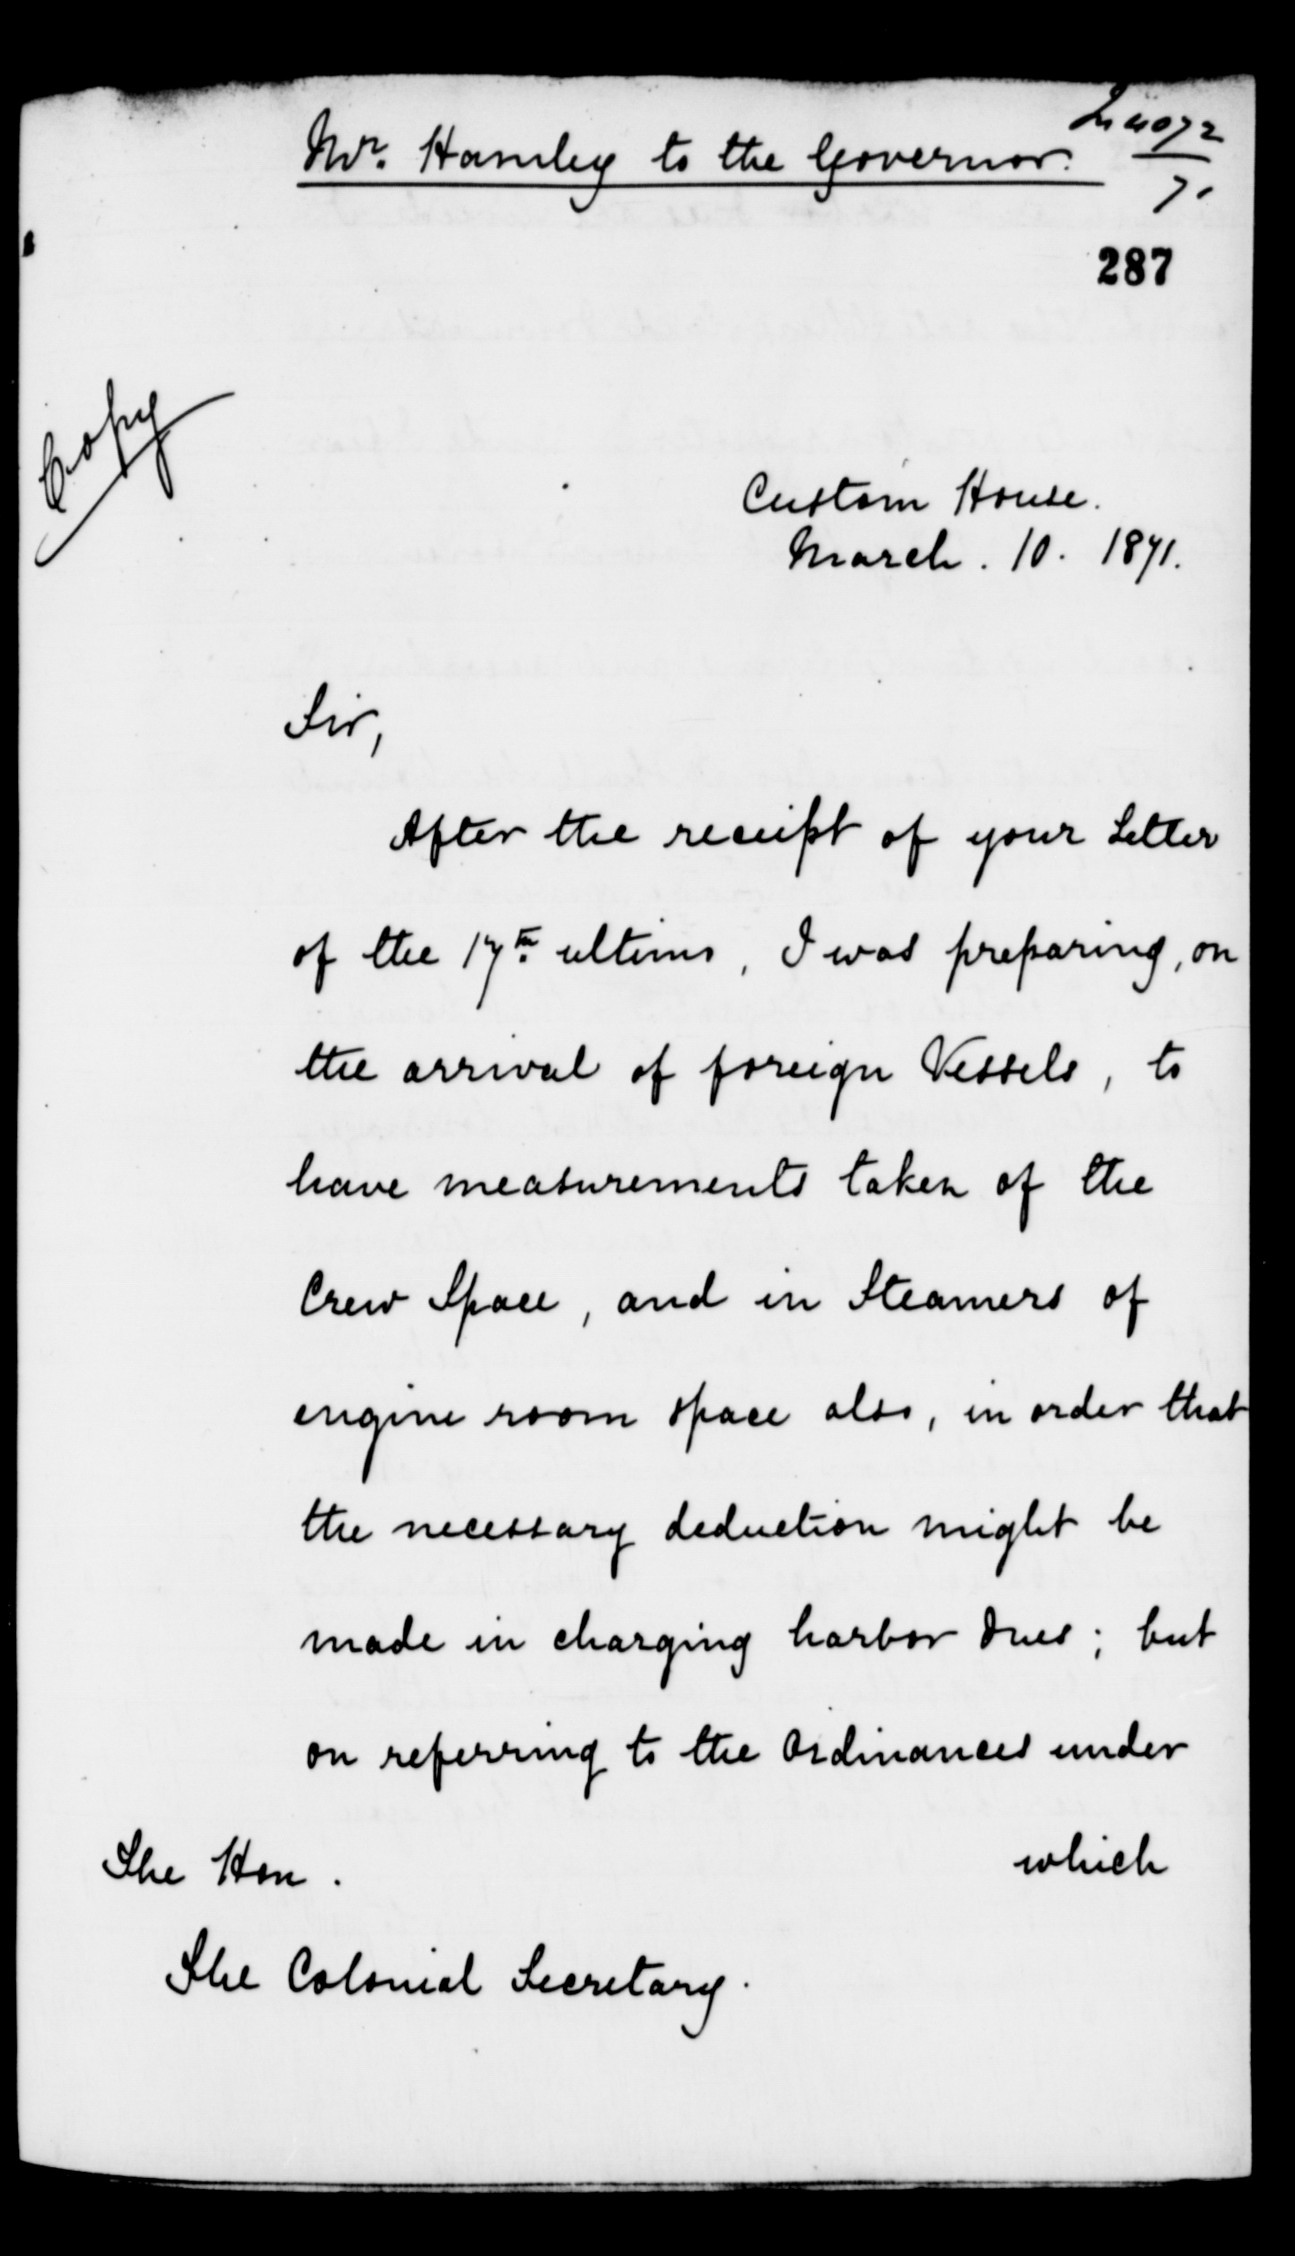 Mr. Hamley to the Governor.
In 4072
71
287
Copy
Custom House.
March. 10. 1871.
Sir,
After the receipt of your Letter
of the 17th ultimo, I was preparing, on
the arrival of foreign Vessels, to
have measurements taken of the
Crew Space, and in Steamers of
engine room space also, in order that
the necessary deduction might be
made in charging harbor dues; but
on referring to the Ordinances under
which
The Hon.
The Colonial Secretary.